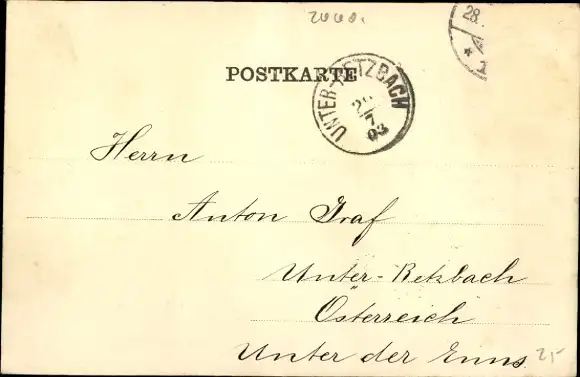 2000.
28.
POSTKARTE
UNTER-RETZBACH
7
03
Herrn
Anton Graf
Unter-Retzbach
Österreich
Unter der Enns
25-